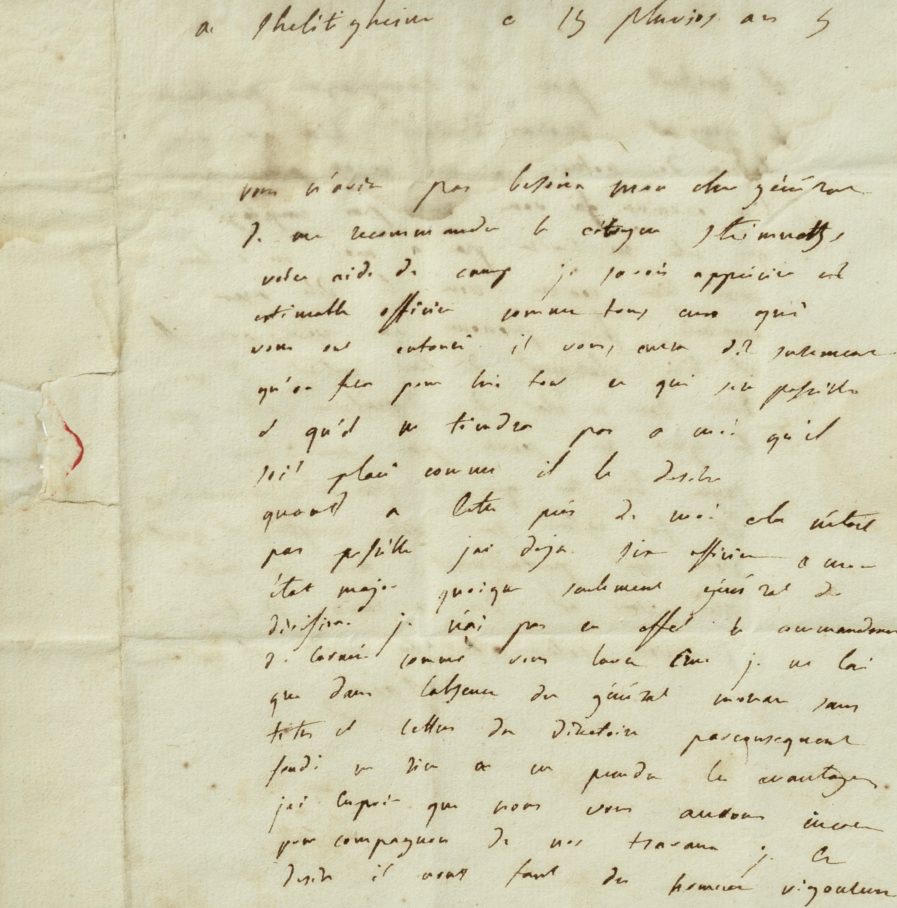 a Shelitigheim ce 15 pluvios an 5
vous n'avie pas besoin mon cher général
de me recommander le citoyen
votre aide de camp je savois apprécier cet
estimable officier comme tous ceux qui
vous ont entouré il vous aura dit surement
qu'on fera pour lui tout ce qui sera possible
et qu'il ne tiendra pas a moi qu'il
soit placé comme il le desire
quant a letre près de moi cela n'étoit
pas possible jai deja six officier a mon
état major quoique seulement général de
division je n'ai pas en effet le commandem
de larmée comme vous lavez cru je ne lai
que dans labsence du général moreau sans
titre et lettres du directoire parconsequent
fondé en rien a en prendre les avantages
jai lespoir que nous vous aurons encore
pour compagnon de nos travaux je le
desire il nous faut des hommes vigoureux